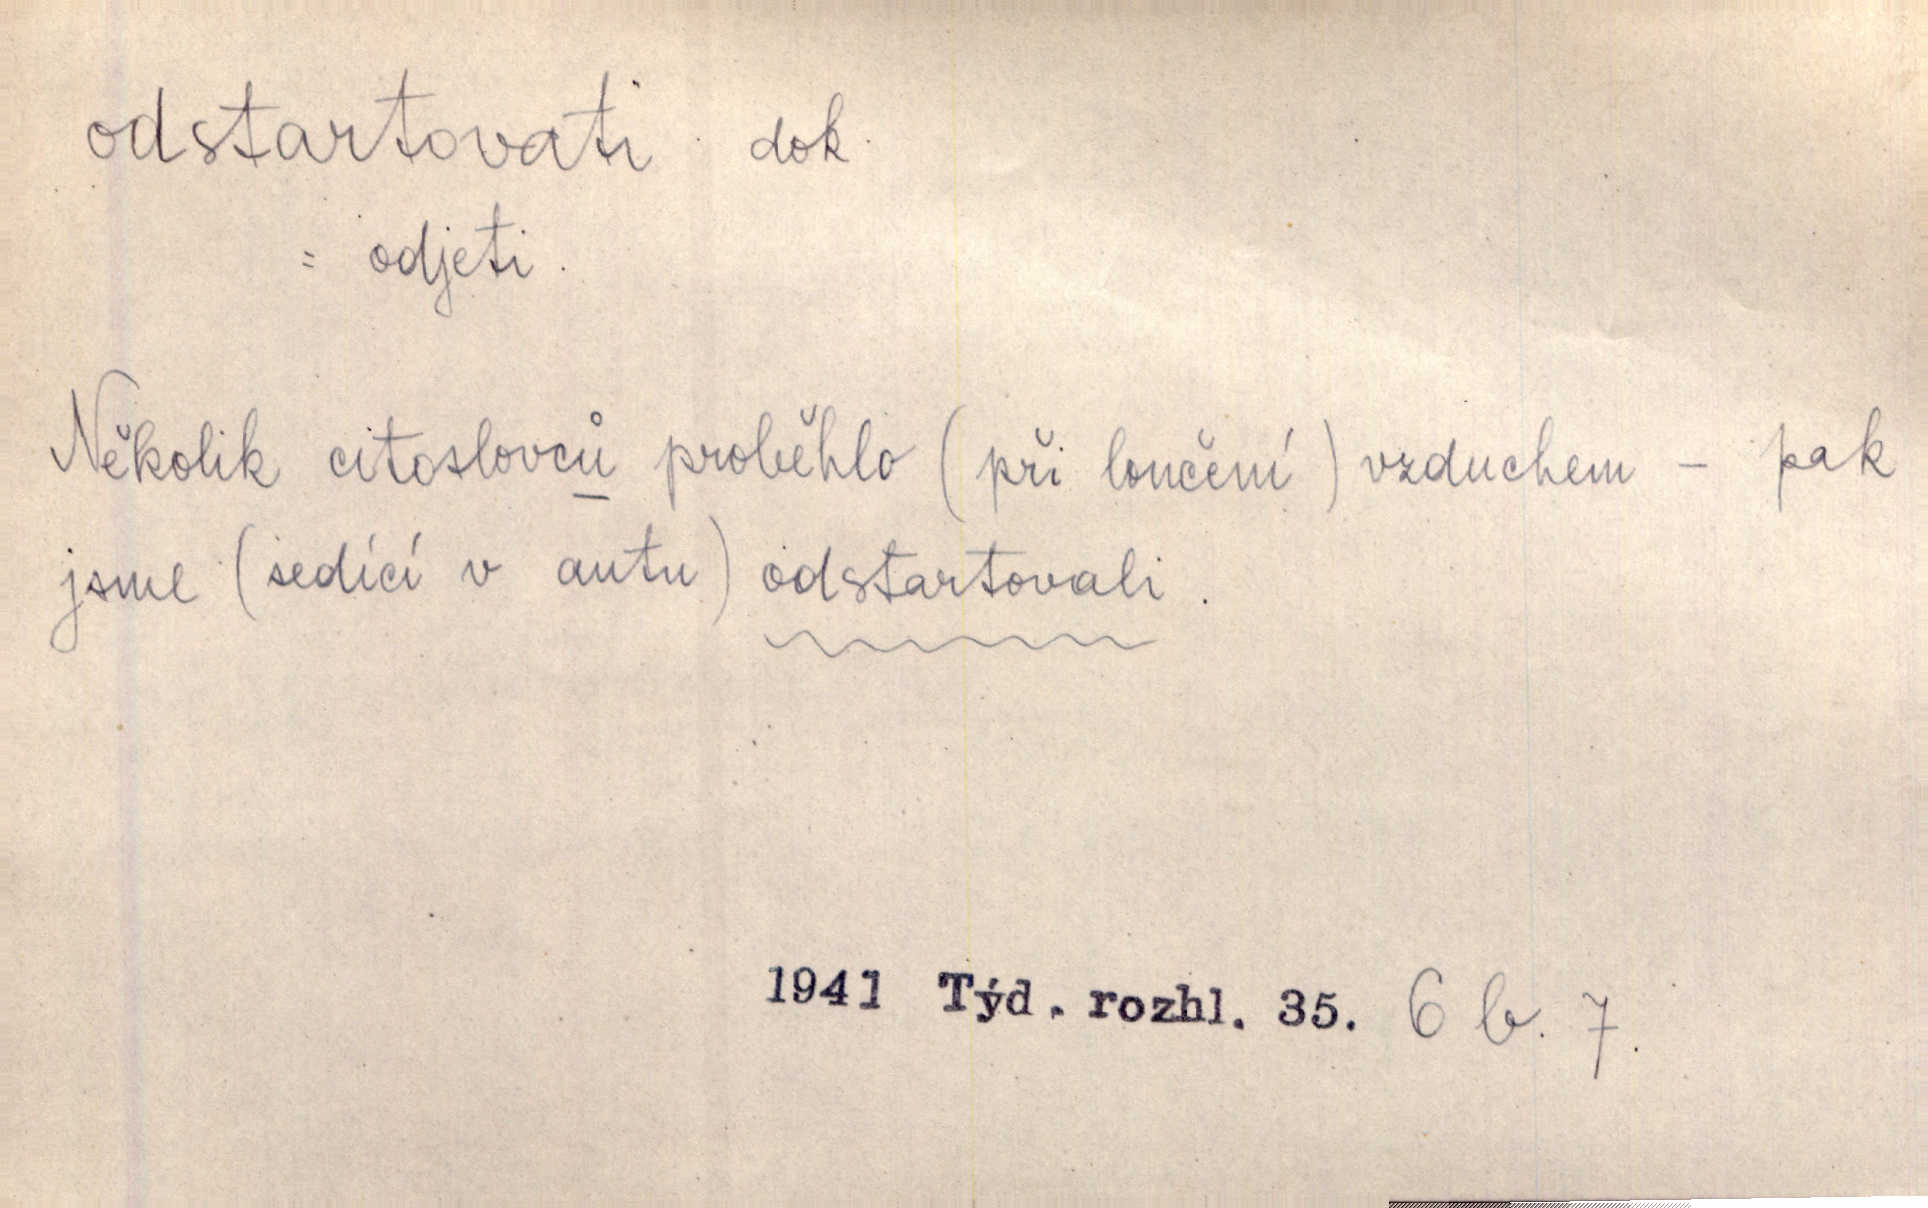 odstartovati dok.
= odjeti.
Několik citoslovců proběhlo (při loučení) vzduchem – pak
jsme (sedící v autu) odstartovali.
1941 Týd. rozhl. 35. 6 b. 7.